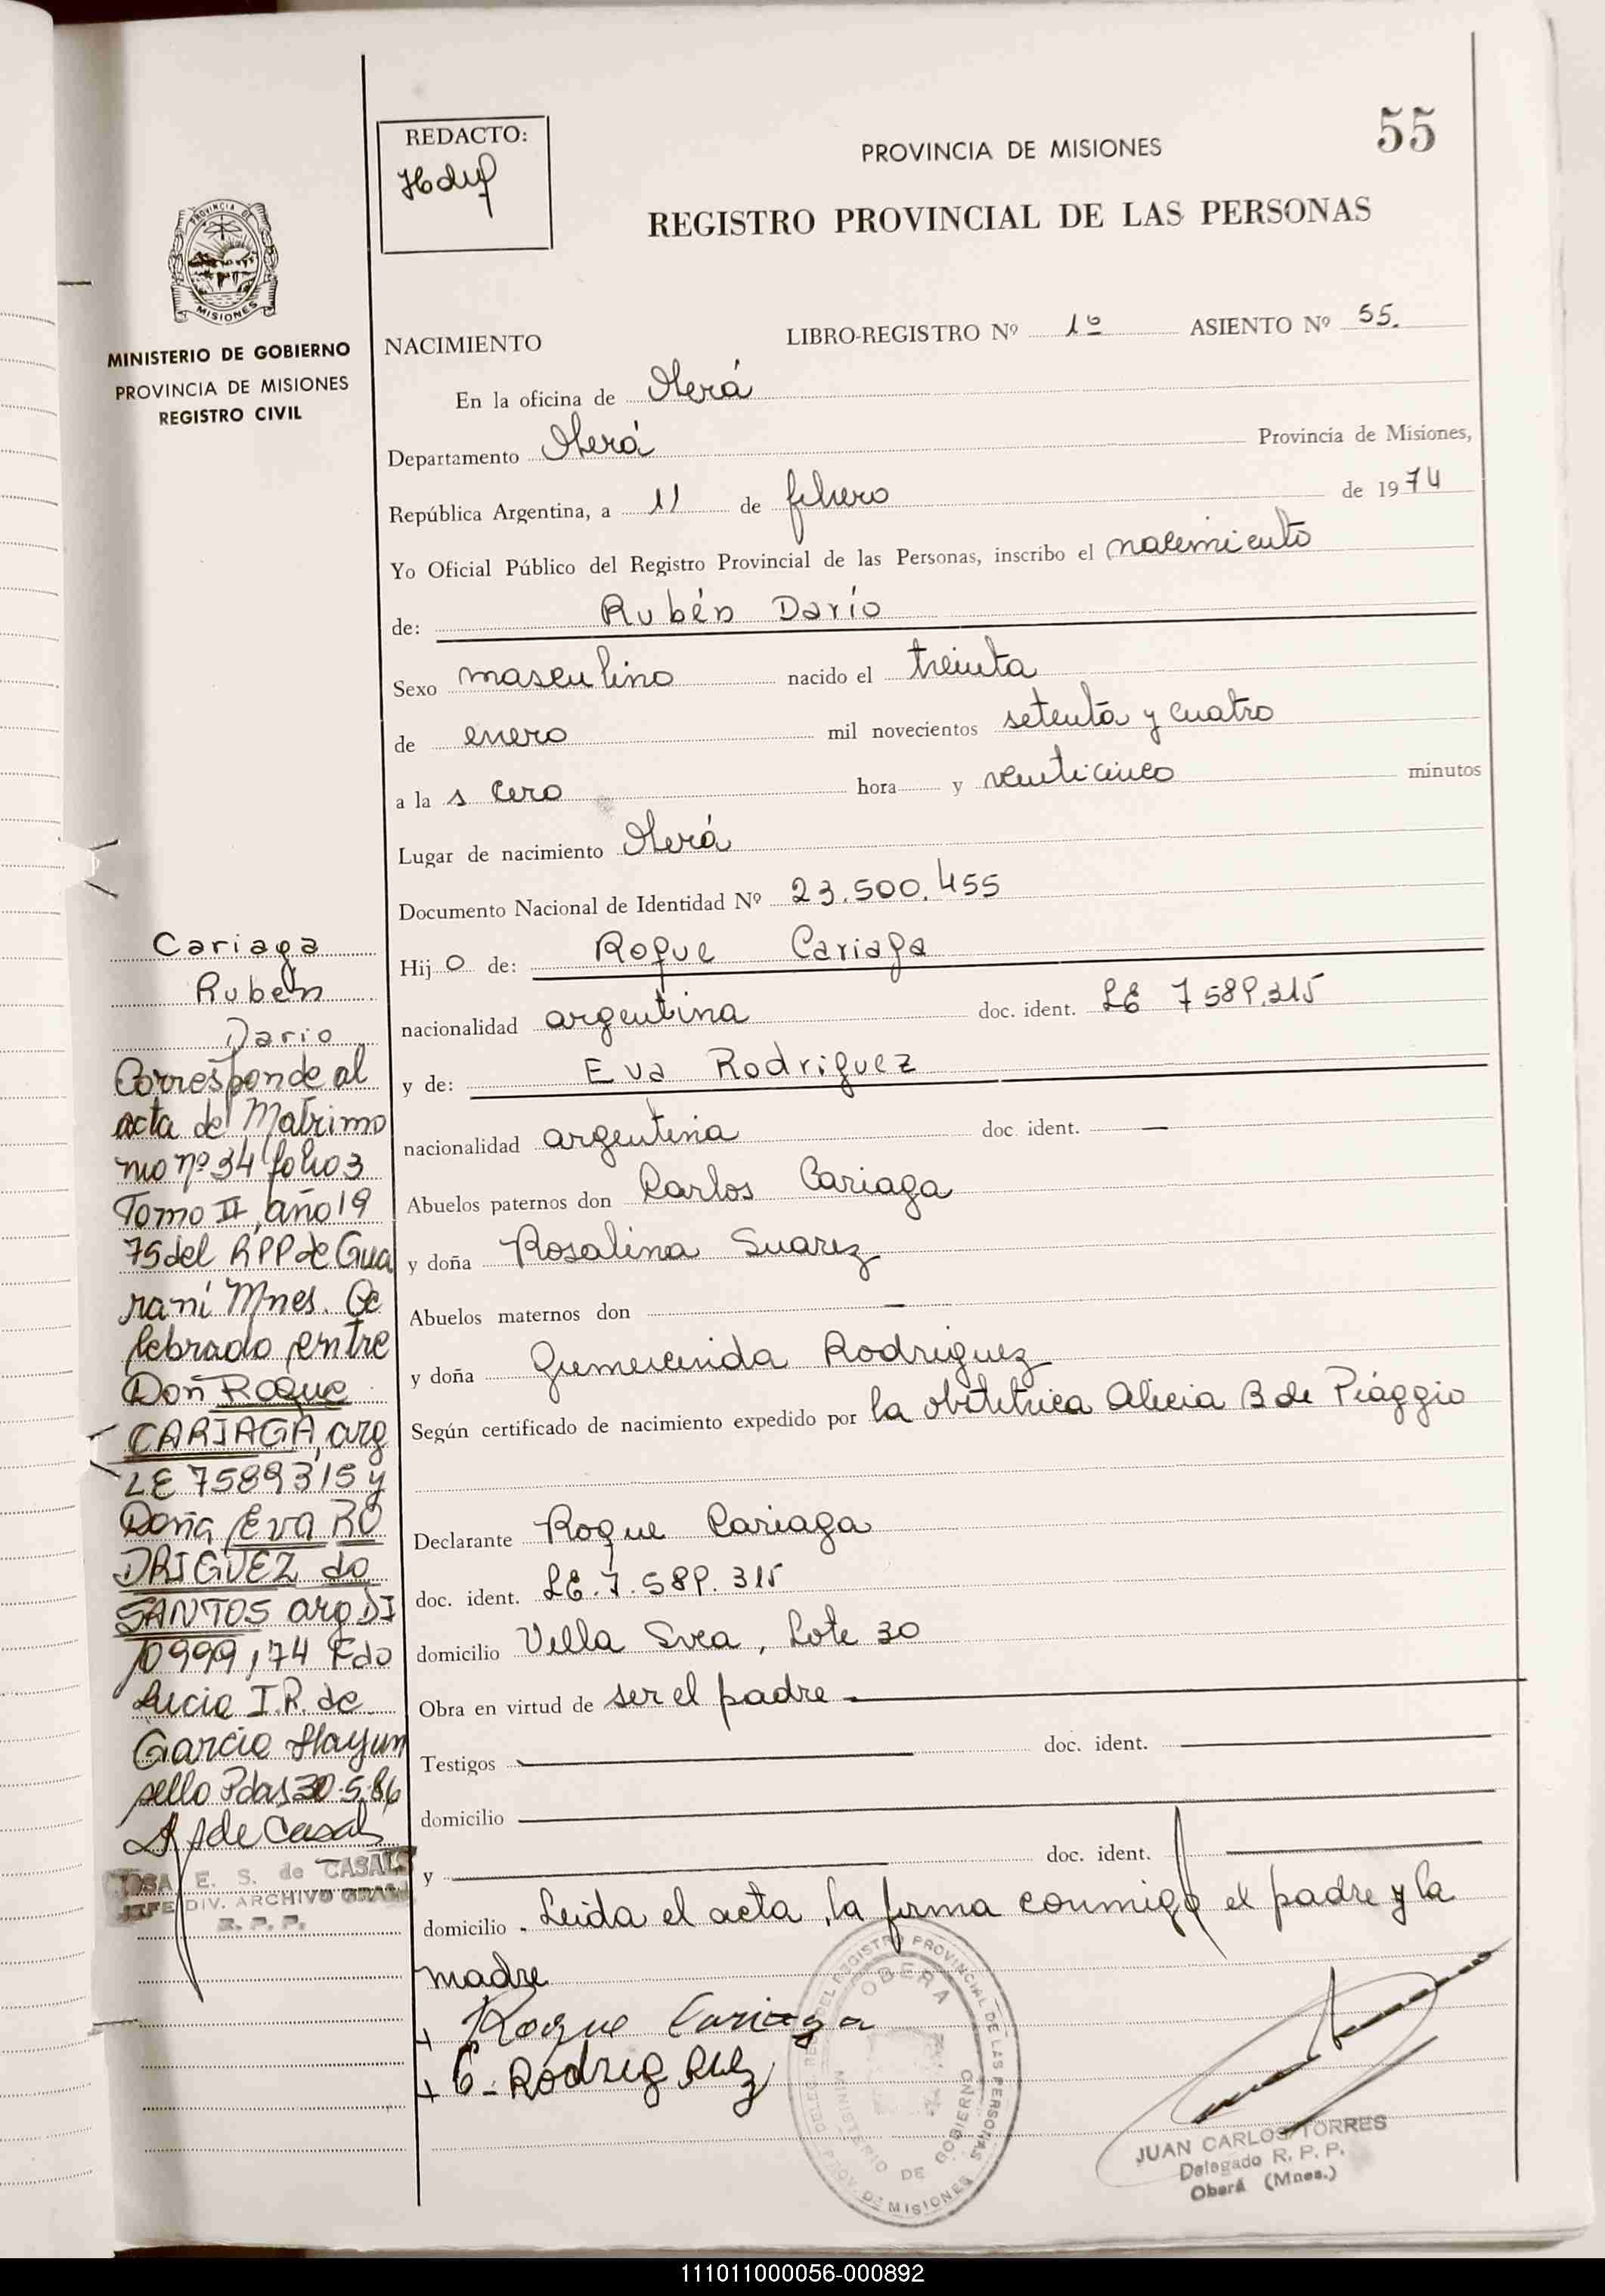 55
REDACTO:
PROVINCIA DE MISIONES
REGISTRO PROVINCIAL DE LAS PERSONAS
PROVINCIA DE
MISIONES
MINISTERIO DE GOBIERNO
PROVINCIA DE MISIONES
REGISTRO CIVIL
NACIMIENTO LIBRO-REGISTRO Nº 1º ASIENTO Nº 55.
En la oficina de Oberá
Departamento Oberá Provincia de Misiones,
República Argentina, a 11 de febrero de 1974
Yo Oficial Público del Registro Provincial de las Personas, inscribo el nacimiento
de: Rubén Darío
Sexo masculino nacido el treinta
de enero mil novecientos setenta y cuatro
a la s cero hora y veinticinco minutos
Lugar de nacimiento Oberá
Documento Nacional de Identidad Nº 23.500.455
Hij o de: Roque Cariaga
nacionalidad argentina doc. ident. LE 7589.315
y de: Eva Rodriguez
nacionalidad argentina doc. ident. —
Abuelos paternos don Carlos Cariaga
y doña Rosalina Suarez
Abuelos maternos don —
y doña Gumercinda Rodriguez
Según certificado de nacimiento expedido por la obstetrica Alicia B de Piaggio
Declarante Roque Cariaga
doc. ident. LE. 7.589.315
domicilio Villa Svea, Lote 30
Obra en virtud de ser el padre
Testigos doc. ident.
domicilio
y doc. ident.
domicilio Leida el acta, la firma conmigo el padre y la
madre
+ Roque Cariaga
+ E. Rodriguez
Cariaga
Rubén
Dario
Corresponde al
acta de Matrimo
nio nº 34 folio 3
Tomo II, año 19
75 del RPP de Gua
raní Mnes. Ce
lebrado entre
Don Roque
CARIAGA, arg
LE 7589315 y
Doña Eva RO
DRIGUEZ do
SANTOS arg DI
10999,74 Fdo
Lucia I.R. de
Garcia Hay un
sello Pdas 30.5.86
de Casals
ROSA E. S. de CASALS
JEFE DIV. ARCHIVO GRAL
R. P. P.
DELEG. REG. DEL REGISTRO PROVINCIAL DE LAS PERSONAS
OBERA
MINISTERIO DE GOBIERNO
PROV. DE MISIONES
JUAN CARLOS TORRES
Delegado R. P. P.
Oberá (Mnes.)
111011000056-000892